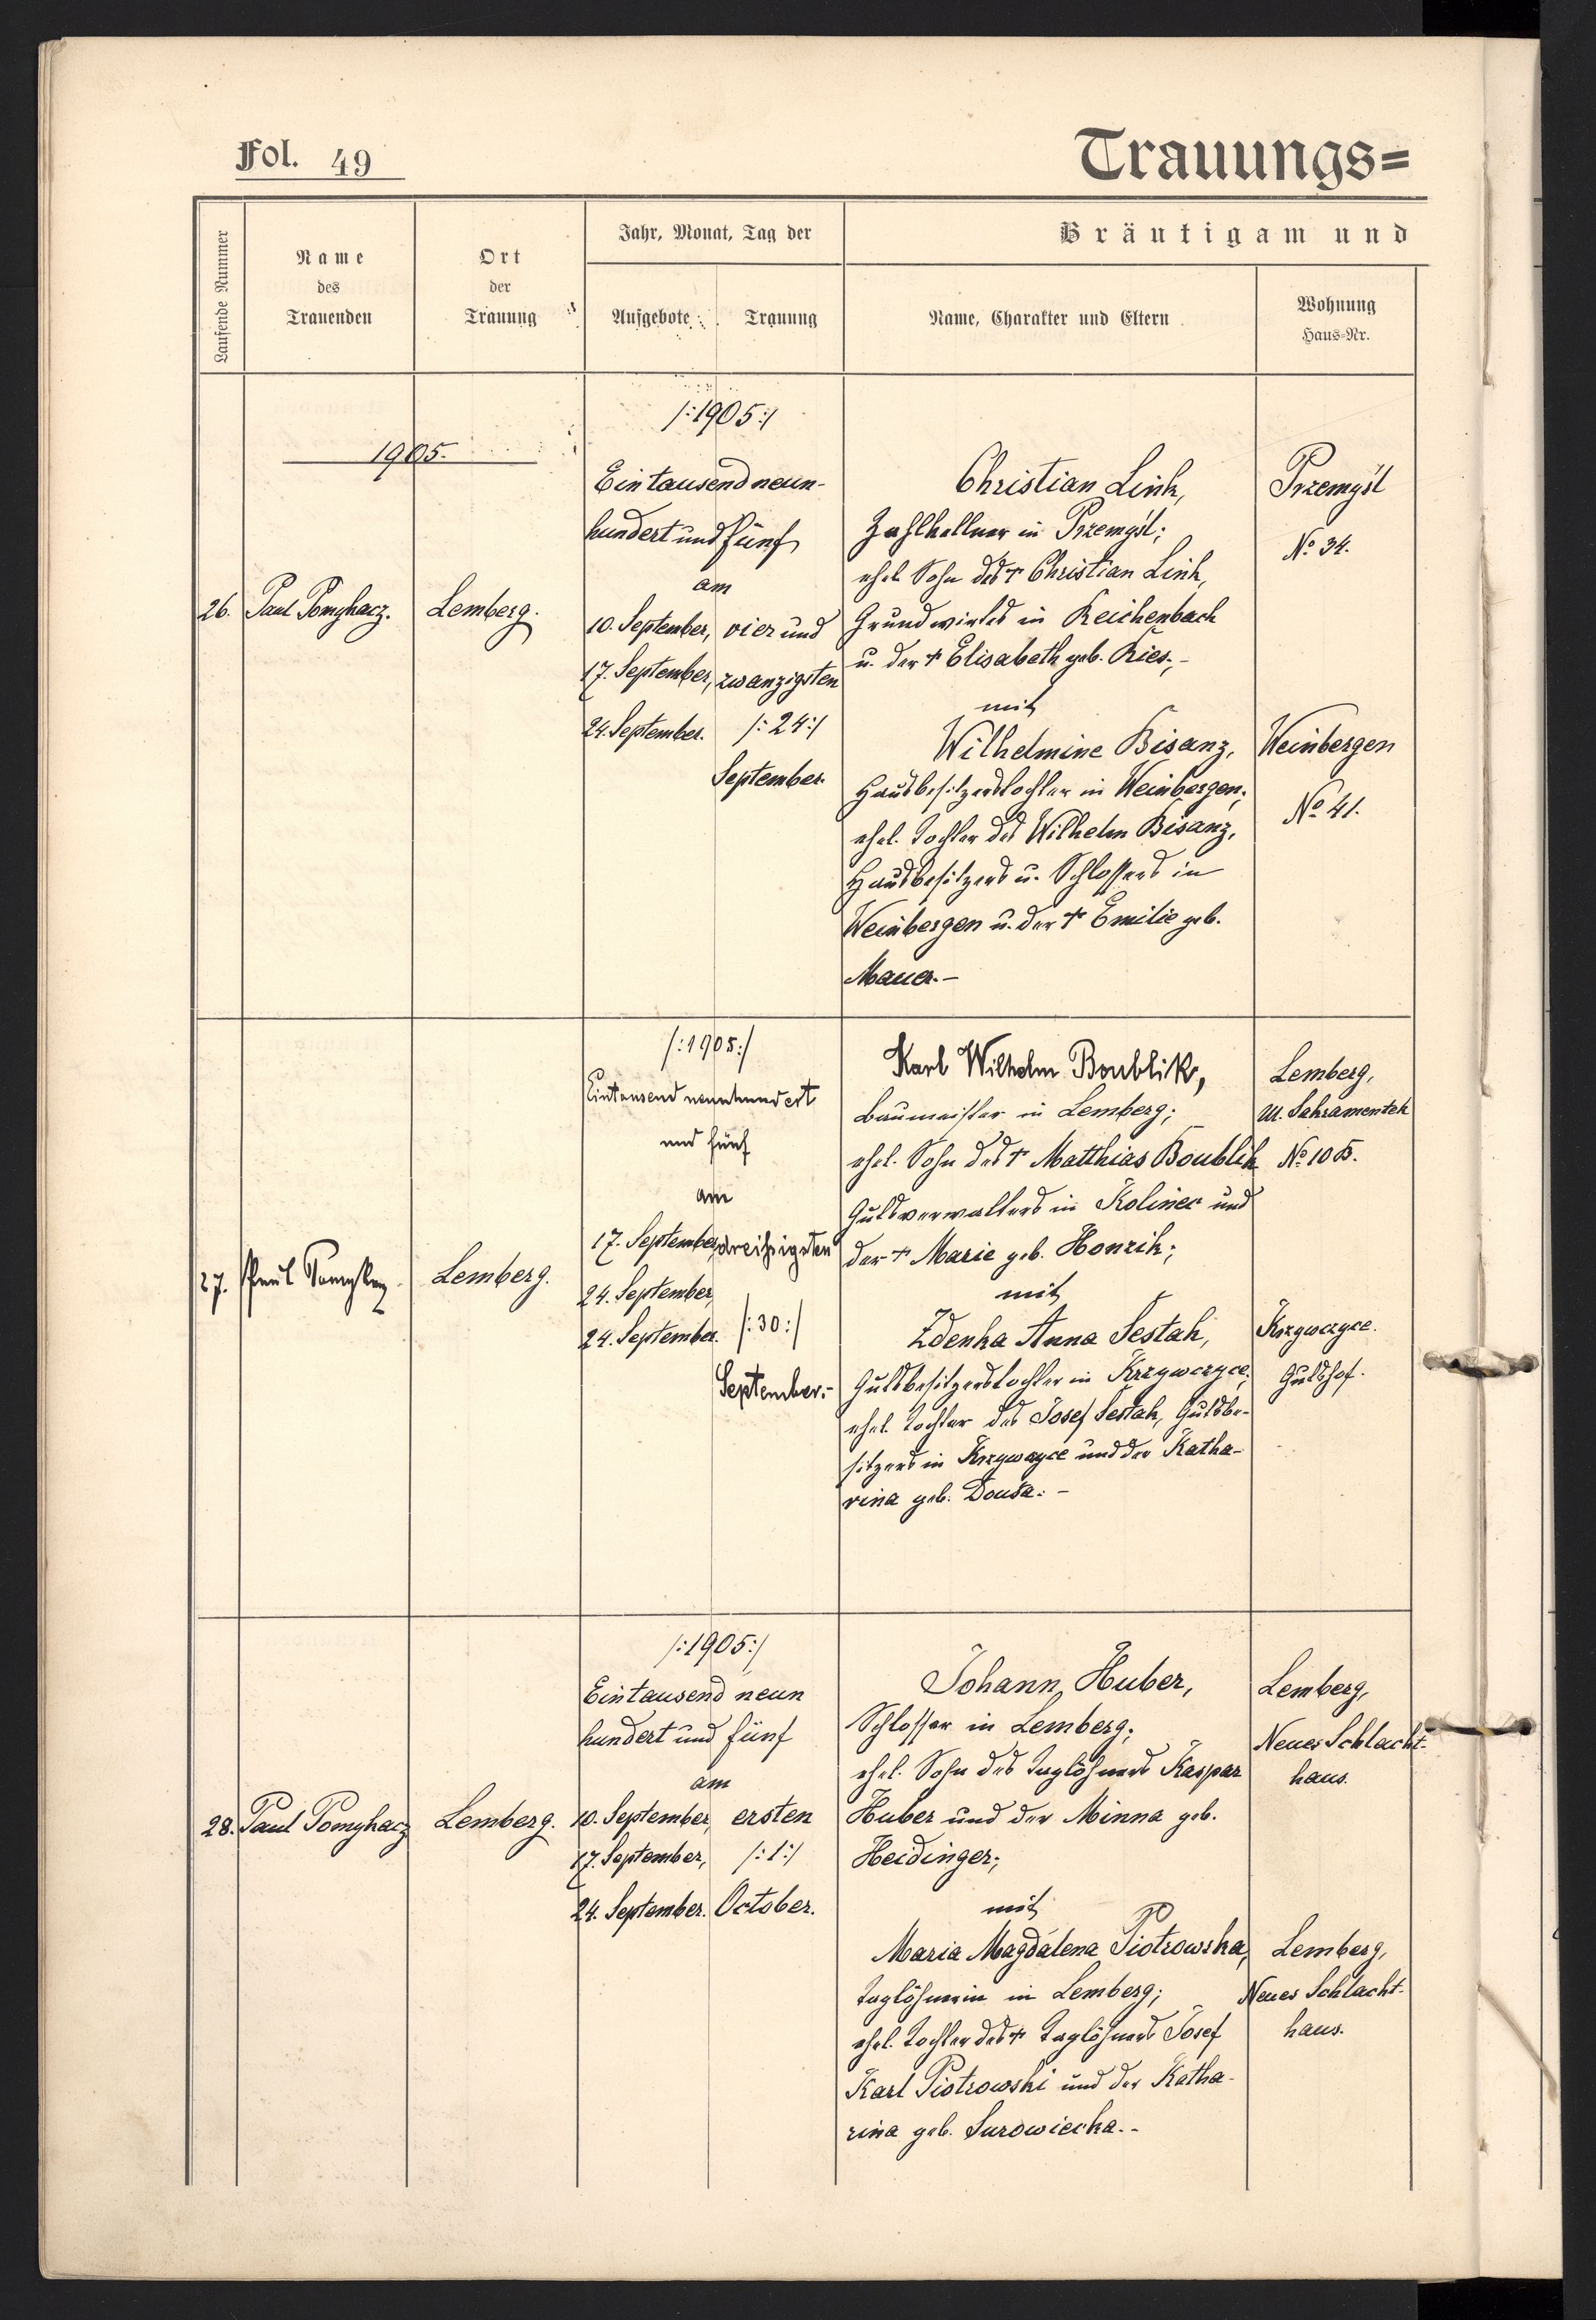 Fol. 49
Trauungs=
Laufende Nummer
Name
des
Trauenden
Ort
der
Trauung
Jahr, Monat, Tag der
Aufgebote
Trauung
Bräutigam und
Name, Charakter und Eltern
Wohnung
Haus-Nr.
1905.
/:1905:/
Eintausend neun-
hundert und fünf
am
26.
Paul Pomykacz.
Lemberg.
10. September,
17. September,
24. September.
vier und
zwanzigsten
/:24:/
September.
Christian Link,
Zahlkellner in Przemyśl;
ehel. Sohn des † Christian Link,
Grundwirtes in Reichenbach
u. der † Elisabeth geb. Ries;-
mit
Wilhelmine Bisanz,
Hausbesitzerstochter in Weinbergen;
ehel. Tochter des Wilhelm Bisanz,
Hausbesitzers u. Schlossers in
Weinbergen u. der † Emilie geb.
Mauer.-
Przemyśl
No 34.
Weinbergen
No 41.
/:1905:/
Eintausend neunhundert
und fünf
am
27.
Paul Pomykacz
Lemberg.
17. September,
24. September,
24. September.
dreißigsten
/:30:/
September.-
Karl Wilhelm Boublik,
Baumeister in Lemberg;
ehel. Sohn des † Matthias Boublik
Gutsverwalters in Kolinec und
der † Marie geb. Honzik;
mit
Zdenka Anna Šestak,
Gutsbesitzerstochter in Krzywczyce;
ehel. Tochter des Josef Šestak, Gutsbe-
sitzers in Krzywczyce und der Katha-
rina geb. Douša.-
Lemberg,
Ul. Sakramentek
No 10 B.
Krzywczyce.
Gutshof.
/:1905:/
Eintausend neun
hundert und fünf
am
28.
Paul Pomykacz
Lemberg.
10. September,
17. September,
24. September.
ersten
/:1:/
October.
Johann Huber,
Schlosser in Lemberg;
ehel. Sohn des Taglöhners Kaspar
Huber und der Minna geb.
Heidinger;
mit
Maria Magdalena Piotrowska,
Taglöhnerin in Lemberg;
ehel. Tochter des † Taglöhners Josef
Karl Piotrowski und der Katha-
rina geb. Surowiecka.-
Lemberg,
Neues Schlacht-
haus.
Lemberg,
Neues Schlacht-
haus.